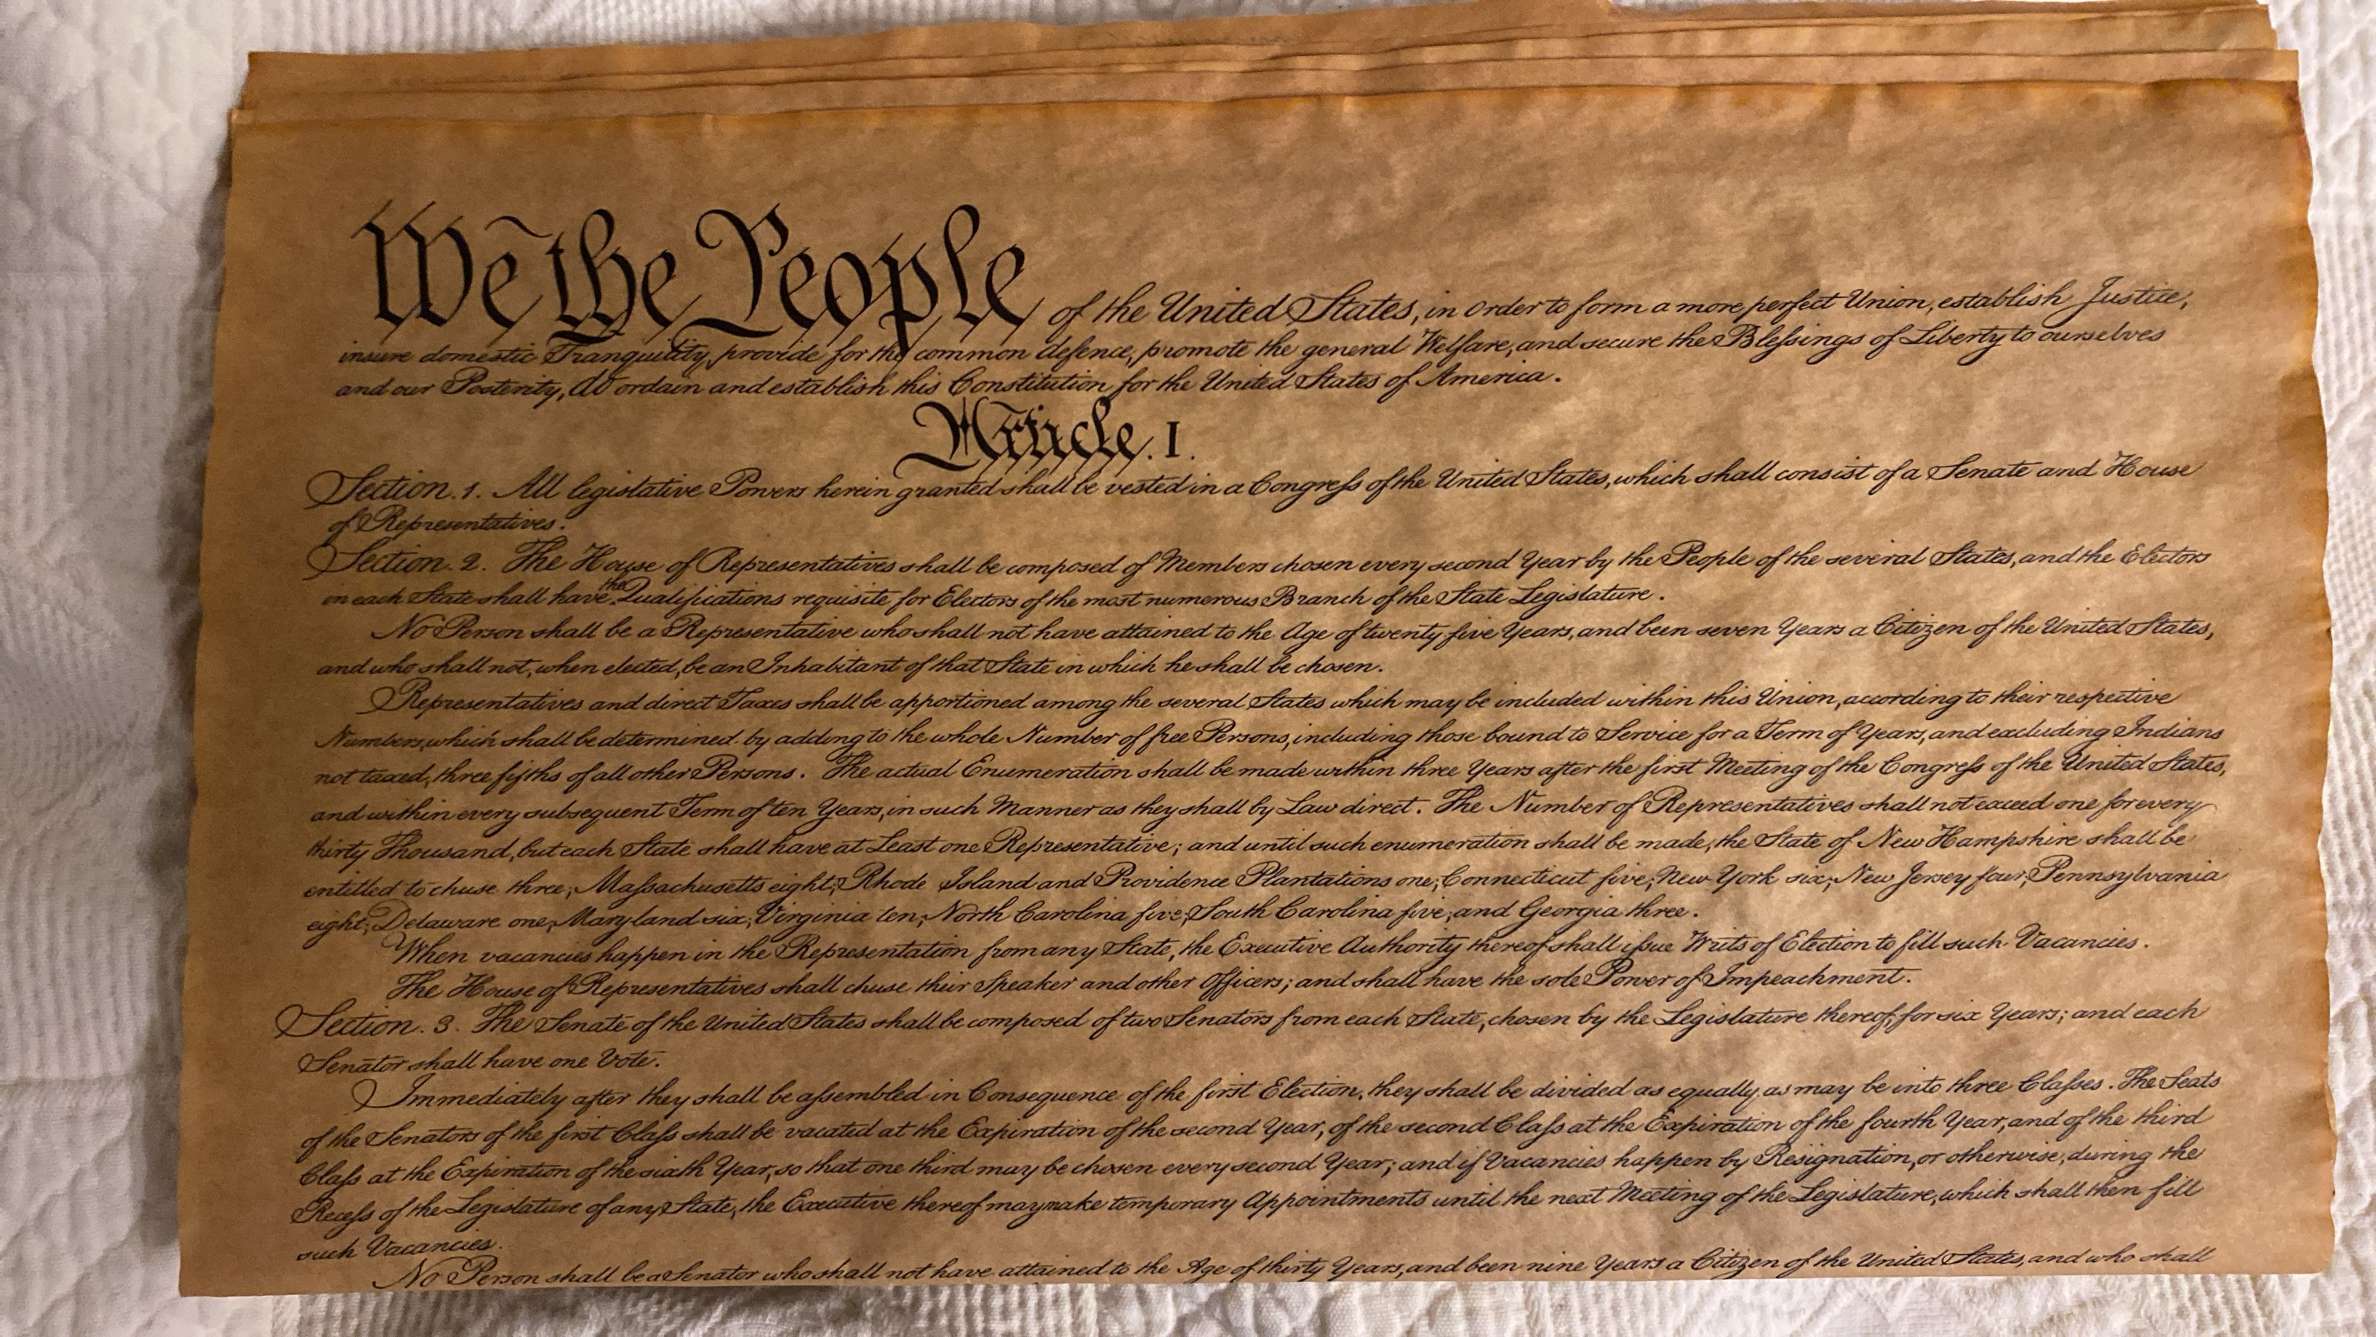 We the People of the United States, in Order to form a more perfect Union, establish Justice,
insure domestic Tranquility, provide for the common defence, promote the general Welfare, and secure the Blessings of Liberty to ourselves
and our Posterity, do ordain and establish this Constitution for the United States of America.
Article. I.
Section. 1. All legislative Powers herein granted shall be vested in a Congress of the United States, which shall consist of a Senate and House
of Representatives.
Section. 2. The House of Representatives shall be composed of Members chosen every second Year by the People of the several States, and the Electors
in each State shall have the Qualifications requisite for Electors of the most numerous Branch of the State Legislature.
No Person shall be a Representative who shall not have attained to the Age of twenty five Years, and been seven Years a Citizen of the United States,
and who shall not, when elected, be an Inhabitant of that State in which he shall be chosen.
Representatives and direct Taxes shall be apportioned among the several States which may be included within this Union, according to their respective
Numbers, which shall be determined by adding to the whole Number of free Persons, including those bound to Service for a Term of Years, and excluding Indians
not taxed, three fifths of all other Persons. The actual Enumeration shall be made within three Years after the first Meeting of the Congress of the United States,
and within every subsequent Term of ten Years, in such Manner as they shall by Law direct. The Number of Representatives shall not exceed one for every
thirty Thousand, but each State shall have at Least one Representative; and until such enumeration shall be made, the State of New Hampshire shall be
entitled to chuse three, Massachusetts eight, Rhode Island and Providence Plantations one, Connecticut five, New York six, New Jersey four, Pennsylvania
eight, Delaware one, Maryland six, Virginia ten, North Carolina five, South Carolina five, and Georgia three.
When vacancies happen in the Representation from any State, the Executive Authority thereof shall issue Writs of Election to fill such Vacancies.
The House of Representatives shall chuse their Speaker and other Officers; and shall have the sole Power of Impeachment.
Section. 3. The Senate of the United States shall be composed of two Senators from each State, chosen by the Legislature thereof, for six Years; and each
Senator shall have one Vote.
Immediately after they shall be assembled in Consequence of the first Election, they shall be divided as equally as may be into three Classes. The Seats
of the Senators of the first Class shall be vacated at the Expiration of the second Year, of the second Class at the Expiration of the fourth Year, and of the third
Class at the Expiration of the sixth Year, so that one third may be chosen every second Year; and if Vacancies happen by Resignation, or otherwise, during the
Recess of the Legislature of any State, the Executive thereof may make temporary Appointments until the next Meeting of the Legislature, which shall then fill
such Vacancies.
No Person shall be a Senator who shall not have attained to the Age of thirty Years, and been nine Years a Citizen of the United States, and who shall